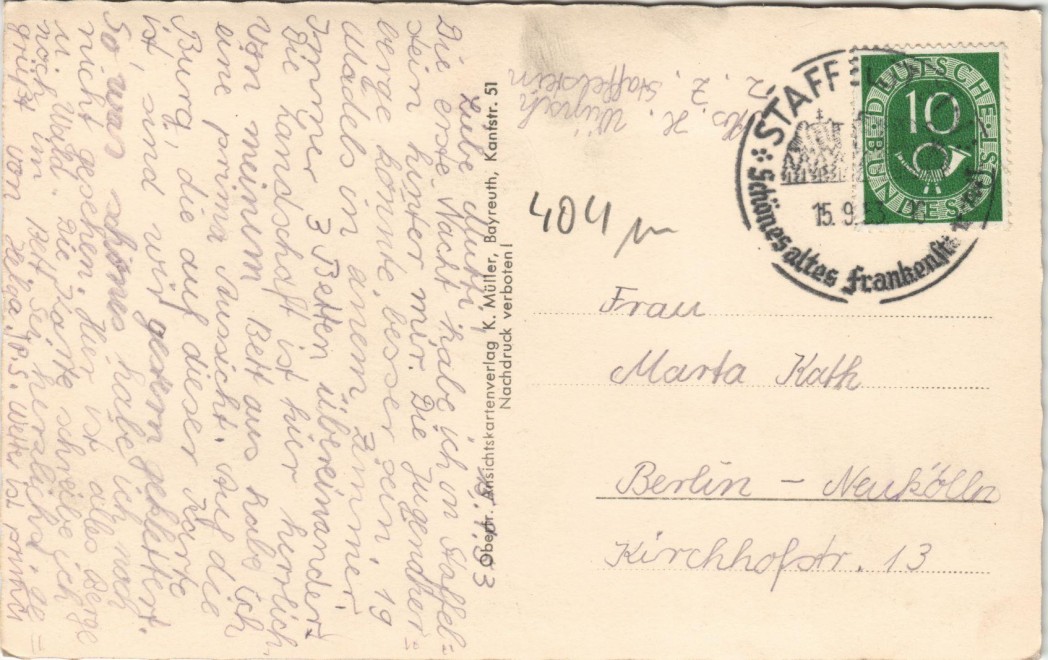 15.9.53
Liebe Mutti!
Die erste Nacht habe ich in Staffel=
stein hinter mir. Die Jugendher=
berge könnte besser sein. 19
Mädels in einem Zimmer.
Immer 3 Betten übereinander.
Die Landschaft ist hier herrlich.
Von meinem Bett aus habe ich
eine prima Aussicht. Auf die
Burg, die auf dieser Karte
ist, sind wir gestern geklettert.
So was schönes habe ich noch
nicht gesehen. Hier ist alles Berge
u. Wald. Die Karte schreibe ich
noch im Bett. Sei herzlichst ge=
grüßt von Helga. P.S. Wetter ist prima
Oberfr. Ansichtskartenverlag K. Müller, Bayreuth, Kantstr. 51
Nachdruck verboten!
Abs. H. Wünsch
z. Z. Staffelstein
404 m
STAFF
Schönes altes Frankenst
15.9.53
DEUTSCHE BUNDESPOST
10
Frau
Marta Kath
Berlin - Neukölln
Kirchhofstr. 13